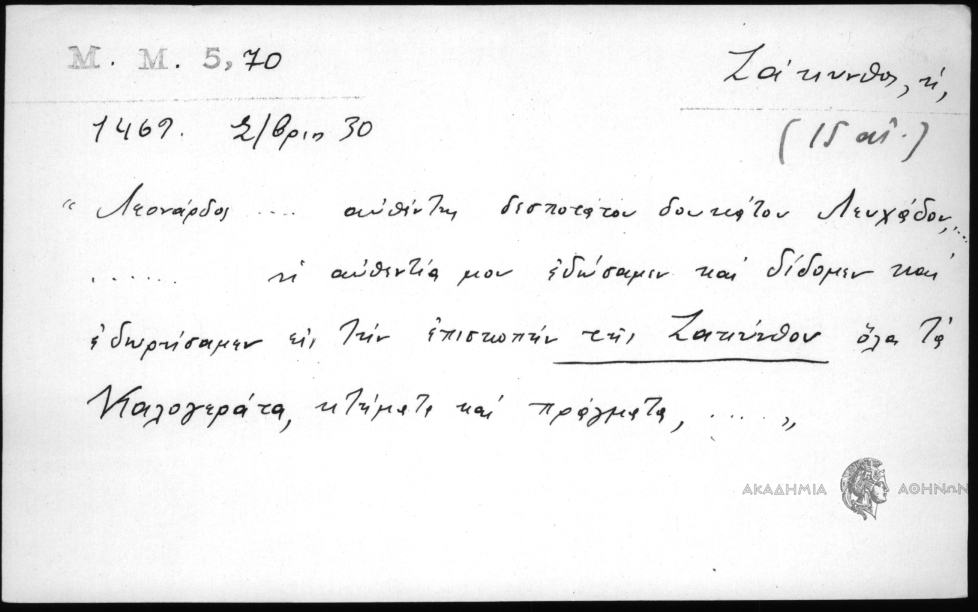 Μ. Μ. 5, 70
Ζάκυνθος, ἡ,
1469. Σ/βρίῳ 30
(15 αἰ.)
“ Λεονάρδος .... αὐθέντης δεσποτάτου δουκάτου Λευχάδου, ....
...... ἡ αὐθεντία μου ἐδώσαμεν καὶ δίδομεν καὶ
ἐδωρήσαμεν εἰς τὴν ἐπισκοπὴν τῆς Ζακύνθου ὅλα τὰ
Καλογεράτα, κτήματα καὶ πράγματα, .... ”
ΑΚΑΔΗΜΙΑ ΑΘΗΝΩΝ